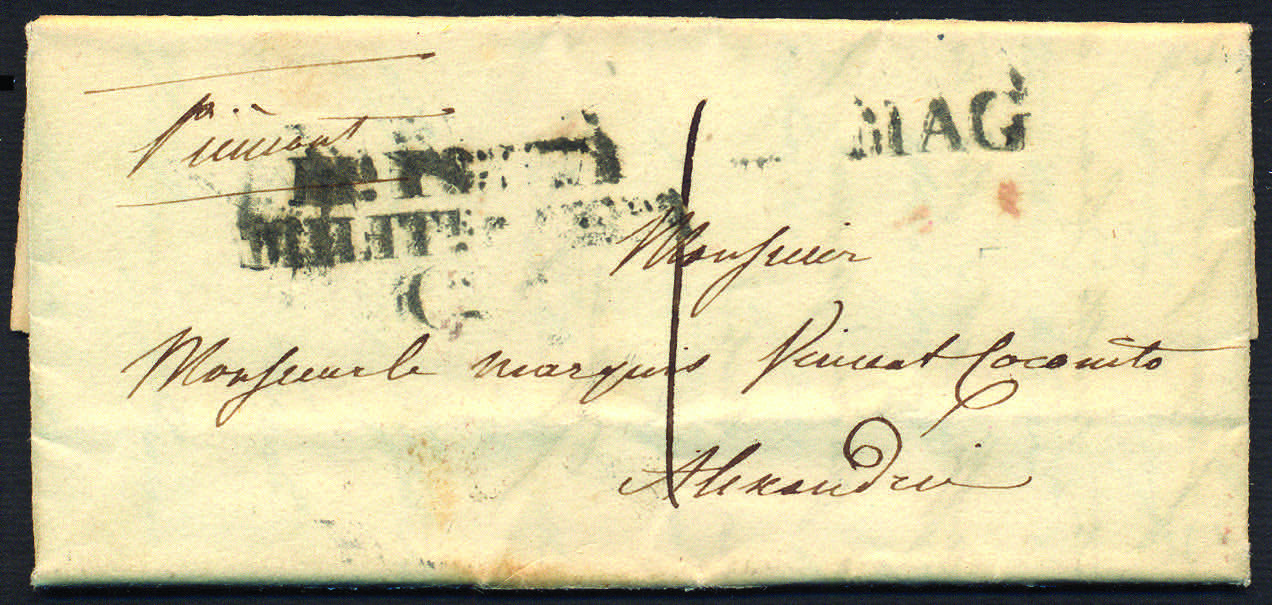 Piémont
MAG
MILIT
C
Monsieur
Monsieur le marquis Vincent Coconito
Alexandrie